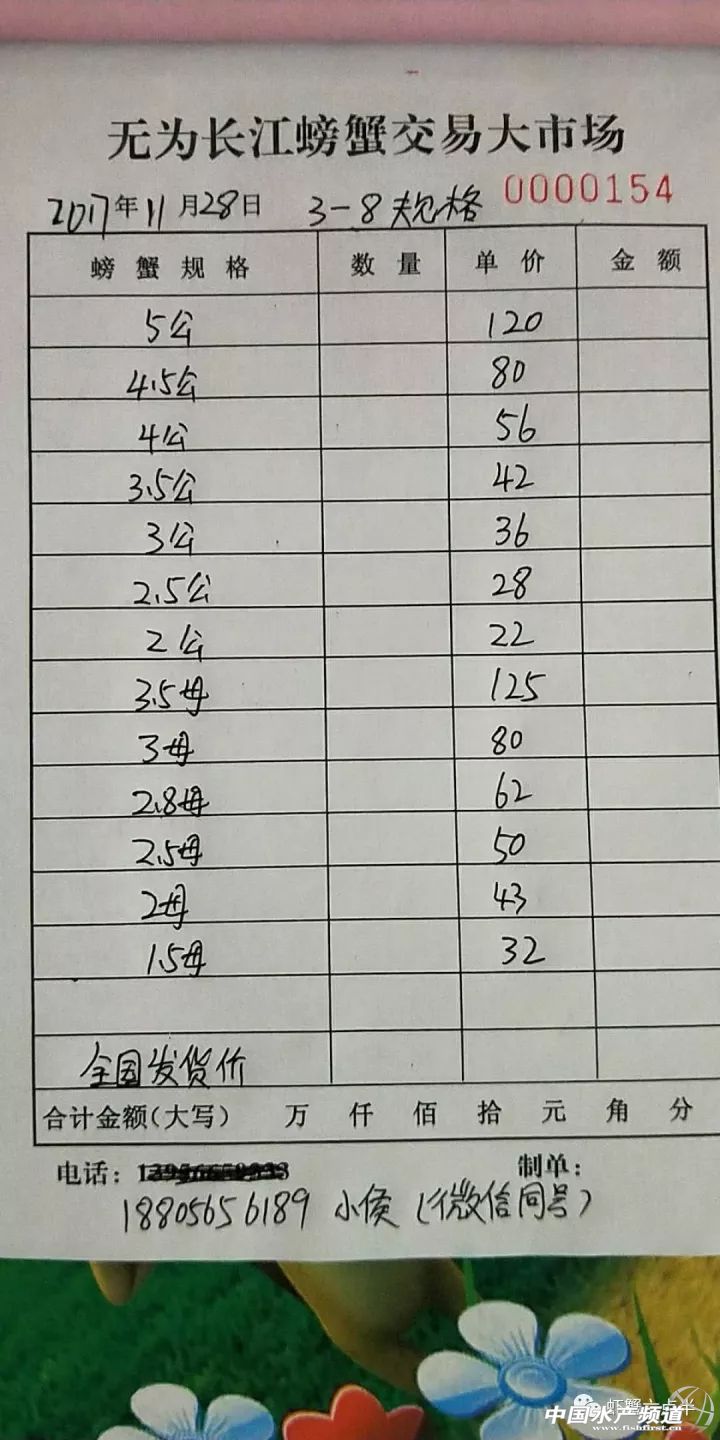 无为长江螃蟹交易大市场
2017年11月28日 3-8规格 0000154
螃蟹规格 数量 单价 金额
5公 120
4.5公 80
4公 56
3.5公 42
3公 36
2.5公 28
2公 22
3.5母 125
3母 80
2.8母 62
2.5母 50
2母 43
1.5母 32
全国发货价
合计金额(大写) 万 仟 佰 拾 元 角 分
电话: 制单:
18805656189 小侯 (微信同号)
虾蟹六点半
中国水产频道
www.fishfirst.cn